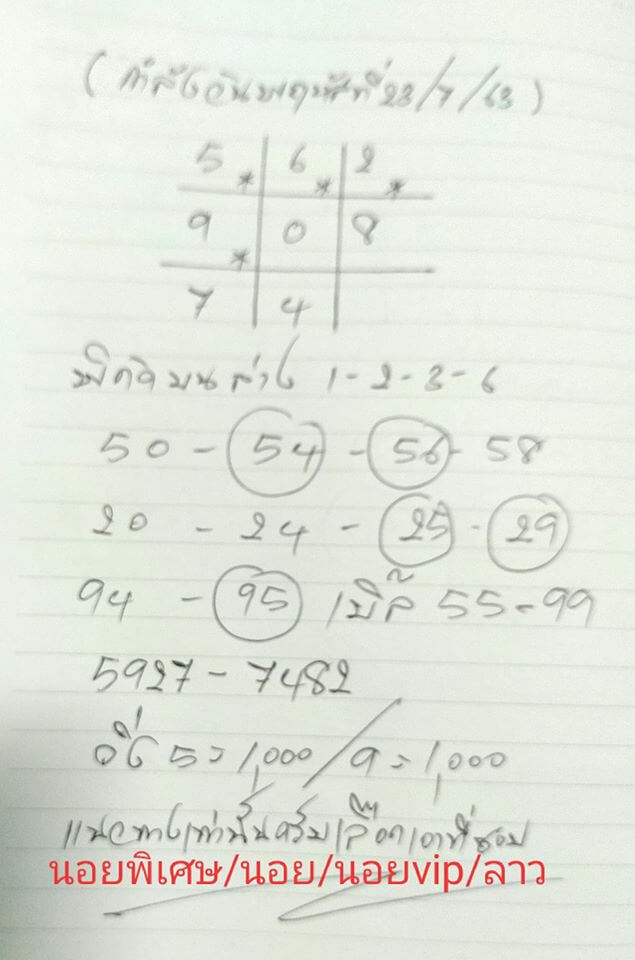 (กำลังวันพฤหัสที่ 23/7/63)
5* 6* 2*
9* 0 8
7 4
พิกัดบนล่าง 1-2-3-6
50 - 54 - 56 - 58
20 - 24 - 25 - 29
94 - 95 เบิ้ล 55-99
5927 - 7482
วิ่ง 5=1,000/9=1,000
แนวทางเท่านั้นครับเลือกเอาที่ชอบ
นอยพิเศษ/นอย/นอยvip/ลาว